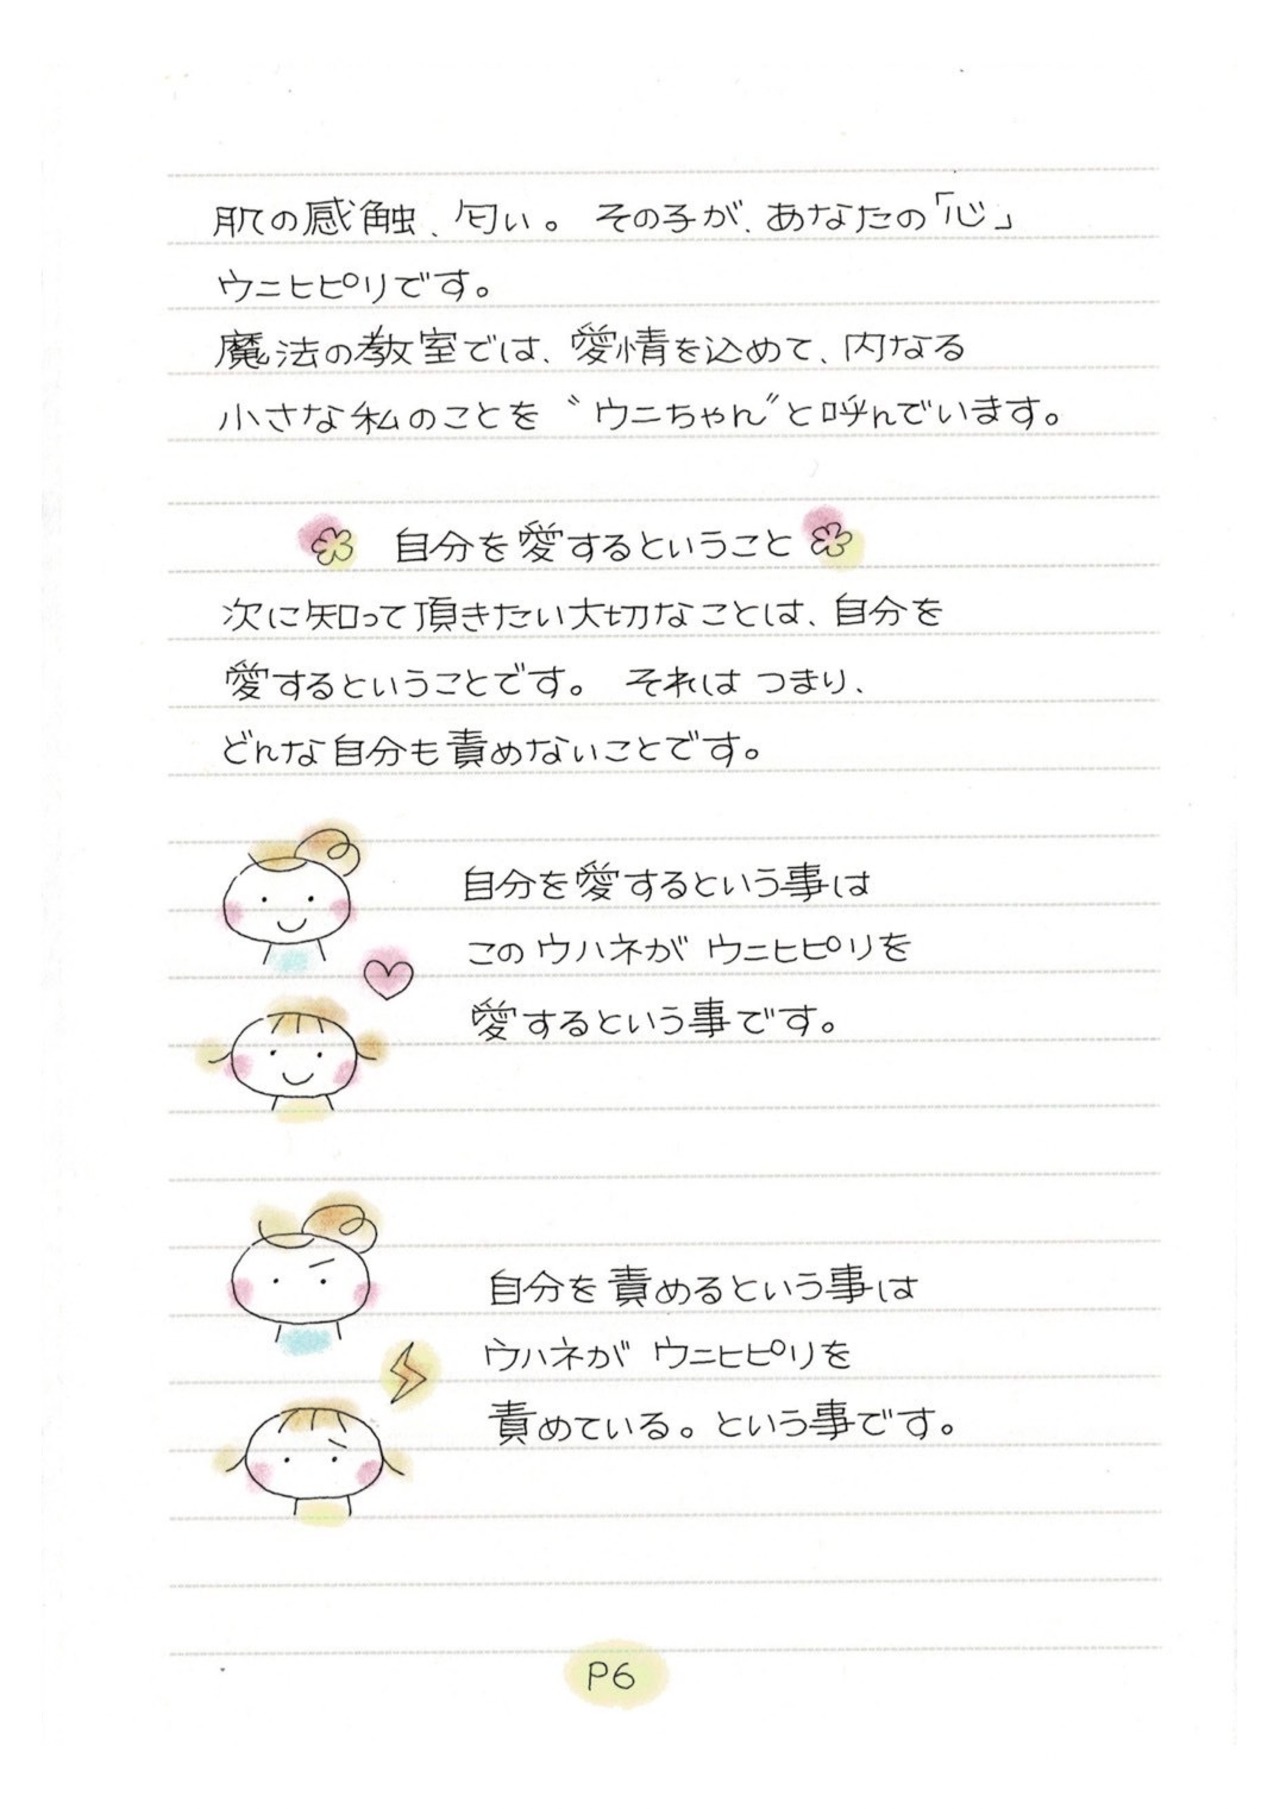 肌の感触、匂い。 その子が、あなたの「心」
ウニヒピリです。
魔法の教室では、愛情を込めて、内なる
小さな私のことを〝ウニちゃん〟と呼んでいます。
自分を愛するということ
次に知って頂きたい大切なことは、自分を
愛するということです。 それは つまり、
どんな自分も責めないことです。
自分を愛するという事は
このウハネが ウニヒピリを
愛するという事です。
自分を責めるという事は
ウハネが ウニヒピリを
責めている。という事です。
P6